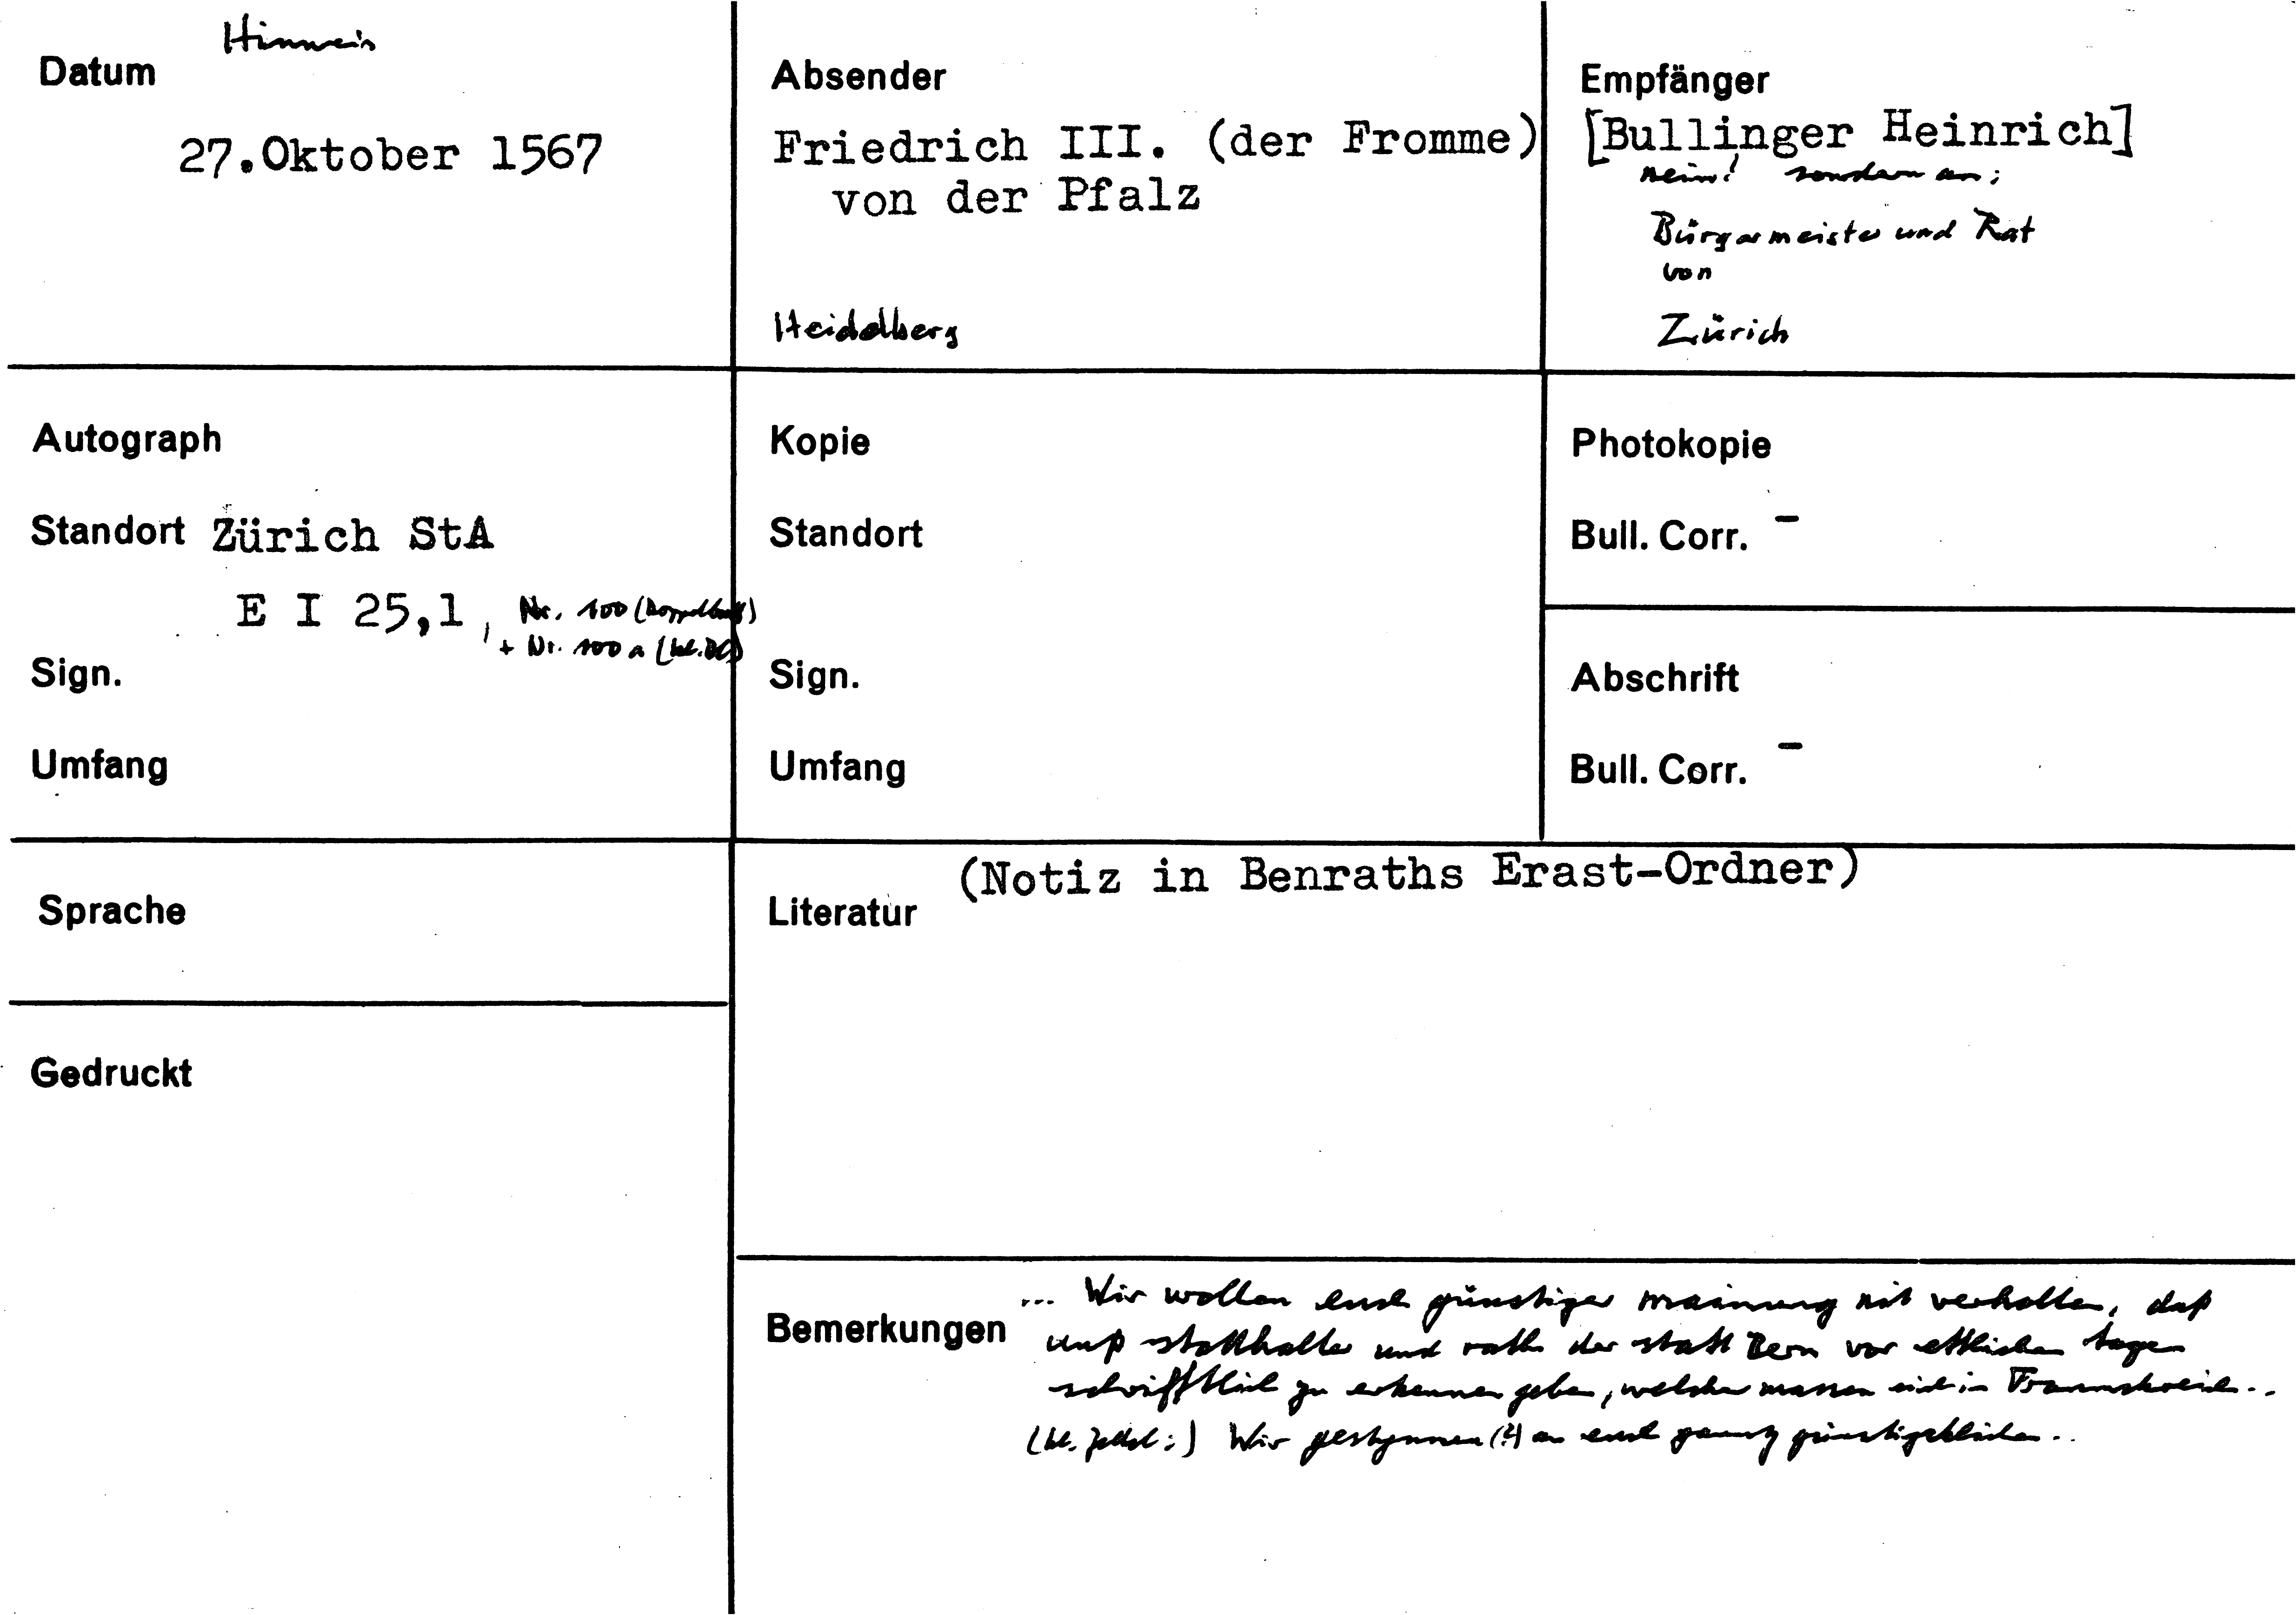 Hinweis
Datum
27.Oktober 1567
Absender
Friedrich III. (der Fromme)
von der Pfalz
Heidelberg
Empfänger
[Bullinger Heinrich]
nein! sondern an:
Bürgermeister und Rat
von
Zürich
Autograph
Standort Zürich StA
E I 25,1, Nr. 100 (Doppelblatt)
+ Nr. 100 a
Sign.
Umfang
Kopie
Standort
Sign.
Umfang
Photokopie
Bull. Corr. -
Abschrift
Bull. Corr. -
Sprache
Gedruckt
(Notiz in Benraths Erast-Ordner)
Literatur
Bemerkungen
... Wir wollen euch günstiger mainung nit verhalten, daß
unß statthalter und rath der statt Bern vor ettlichen tagen
schrifftlich zu erkennen geben, welcher massen sich in Franckreich...
(kl. Zettel:) Wir gestynnen (?) an euch gantz günstigcklichen...